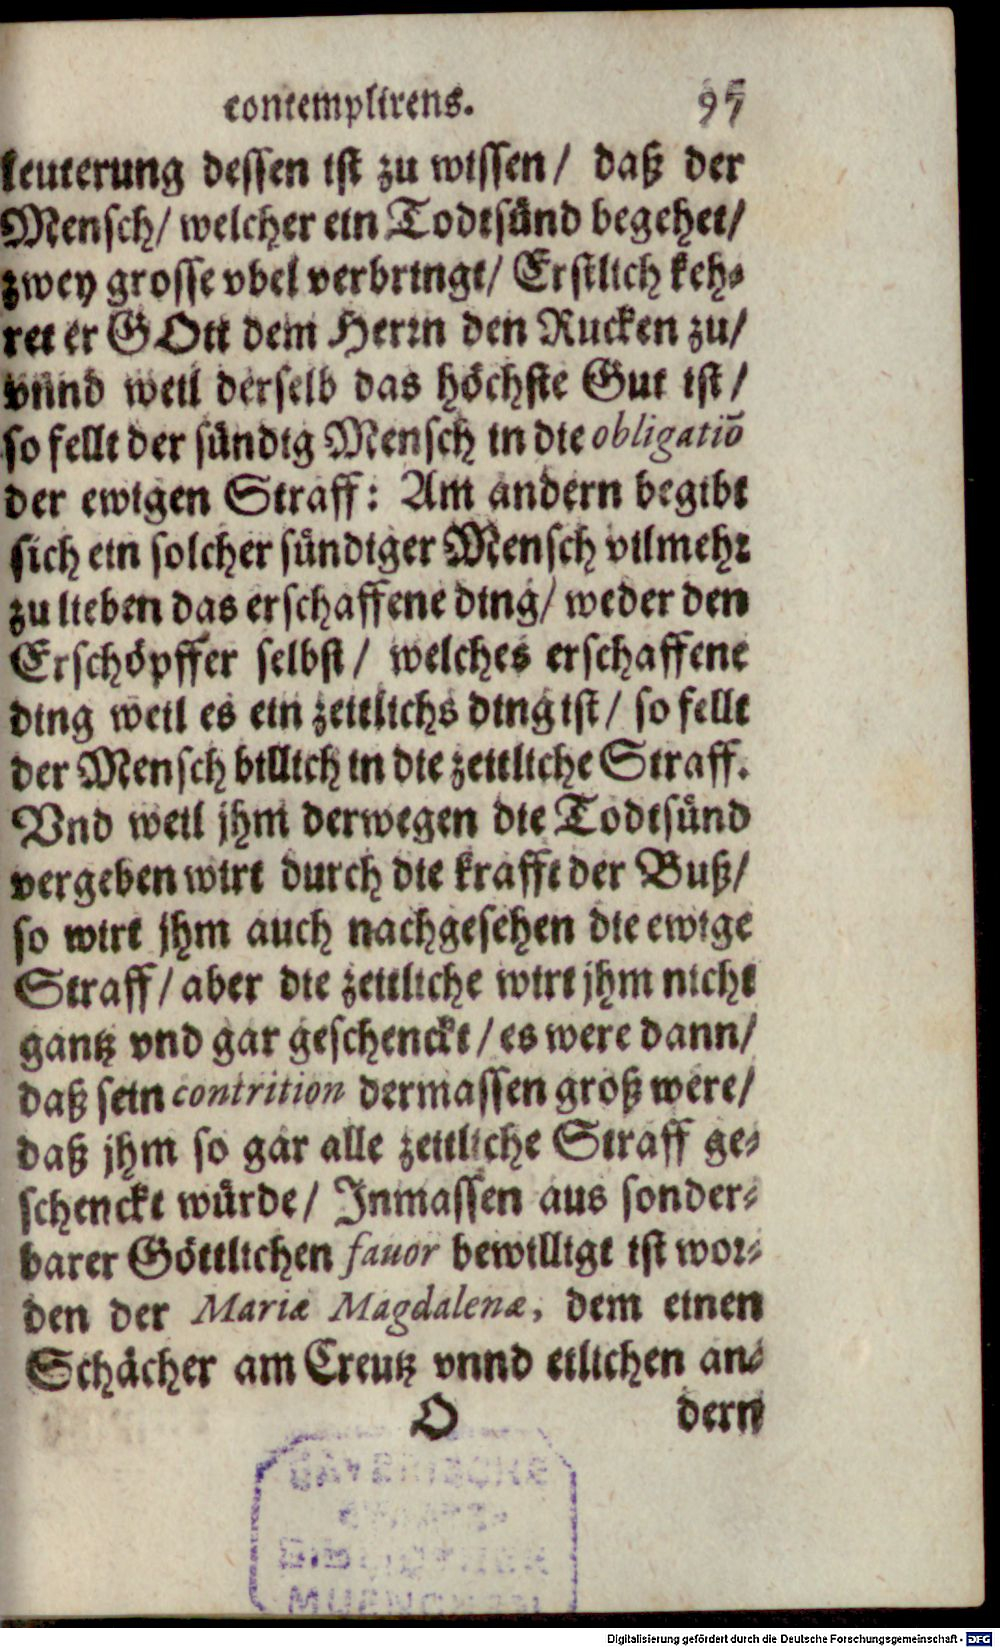 contemplirens. 97
leuterung dessen ist zu wissen/ daß der
Mensch/ welcher ein Todtsünd begehet/
zwey grosse vbel verbringt/ Erstlich keh-
ret er GOtt dem Herrn den Rucken zu/
vnnd weil derselb das höchste Gut ist/
so fellt der sündig Mensch in die obligatiō
der ewigen Straff: Am andern begibt
sich ein solcher sündiger Mensch vilmehr
zu lieben das erschaffene ding/ weder den
Erschöpffer selbst/ welches erschaffene
ding weil es ein zeitlichs ding ist/ so fellt
der Mensch billich in die zeitliche Straff.
Vnd weil jhm derwegen die Todtsünd
vergeben wirt durch die krafft der Buß/
so wirt jhm auch nachgesehen die ewige
Straff/ aber die zeitliche wirt jhm nicht
gantz vnd gar geschenckt/ es were dann/
daß sein contrition dermassen groß were/
daß jhm so gar alle zeitliche Straff ge-
schenckt würde/ Inmassen aus sonder-
barer Göttlichen fauor bewilligt ist wor-
den der Mariæ Magdalenæ, dem einen
Schächer am Creutz vnnd etlichen an-
O dern
Digitalisierung gefördert durch die Deutsche Forschungsgemeinschaft - DFG